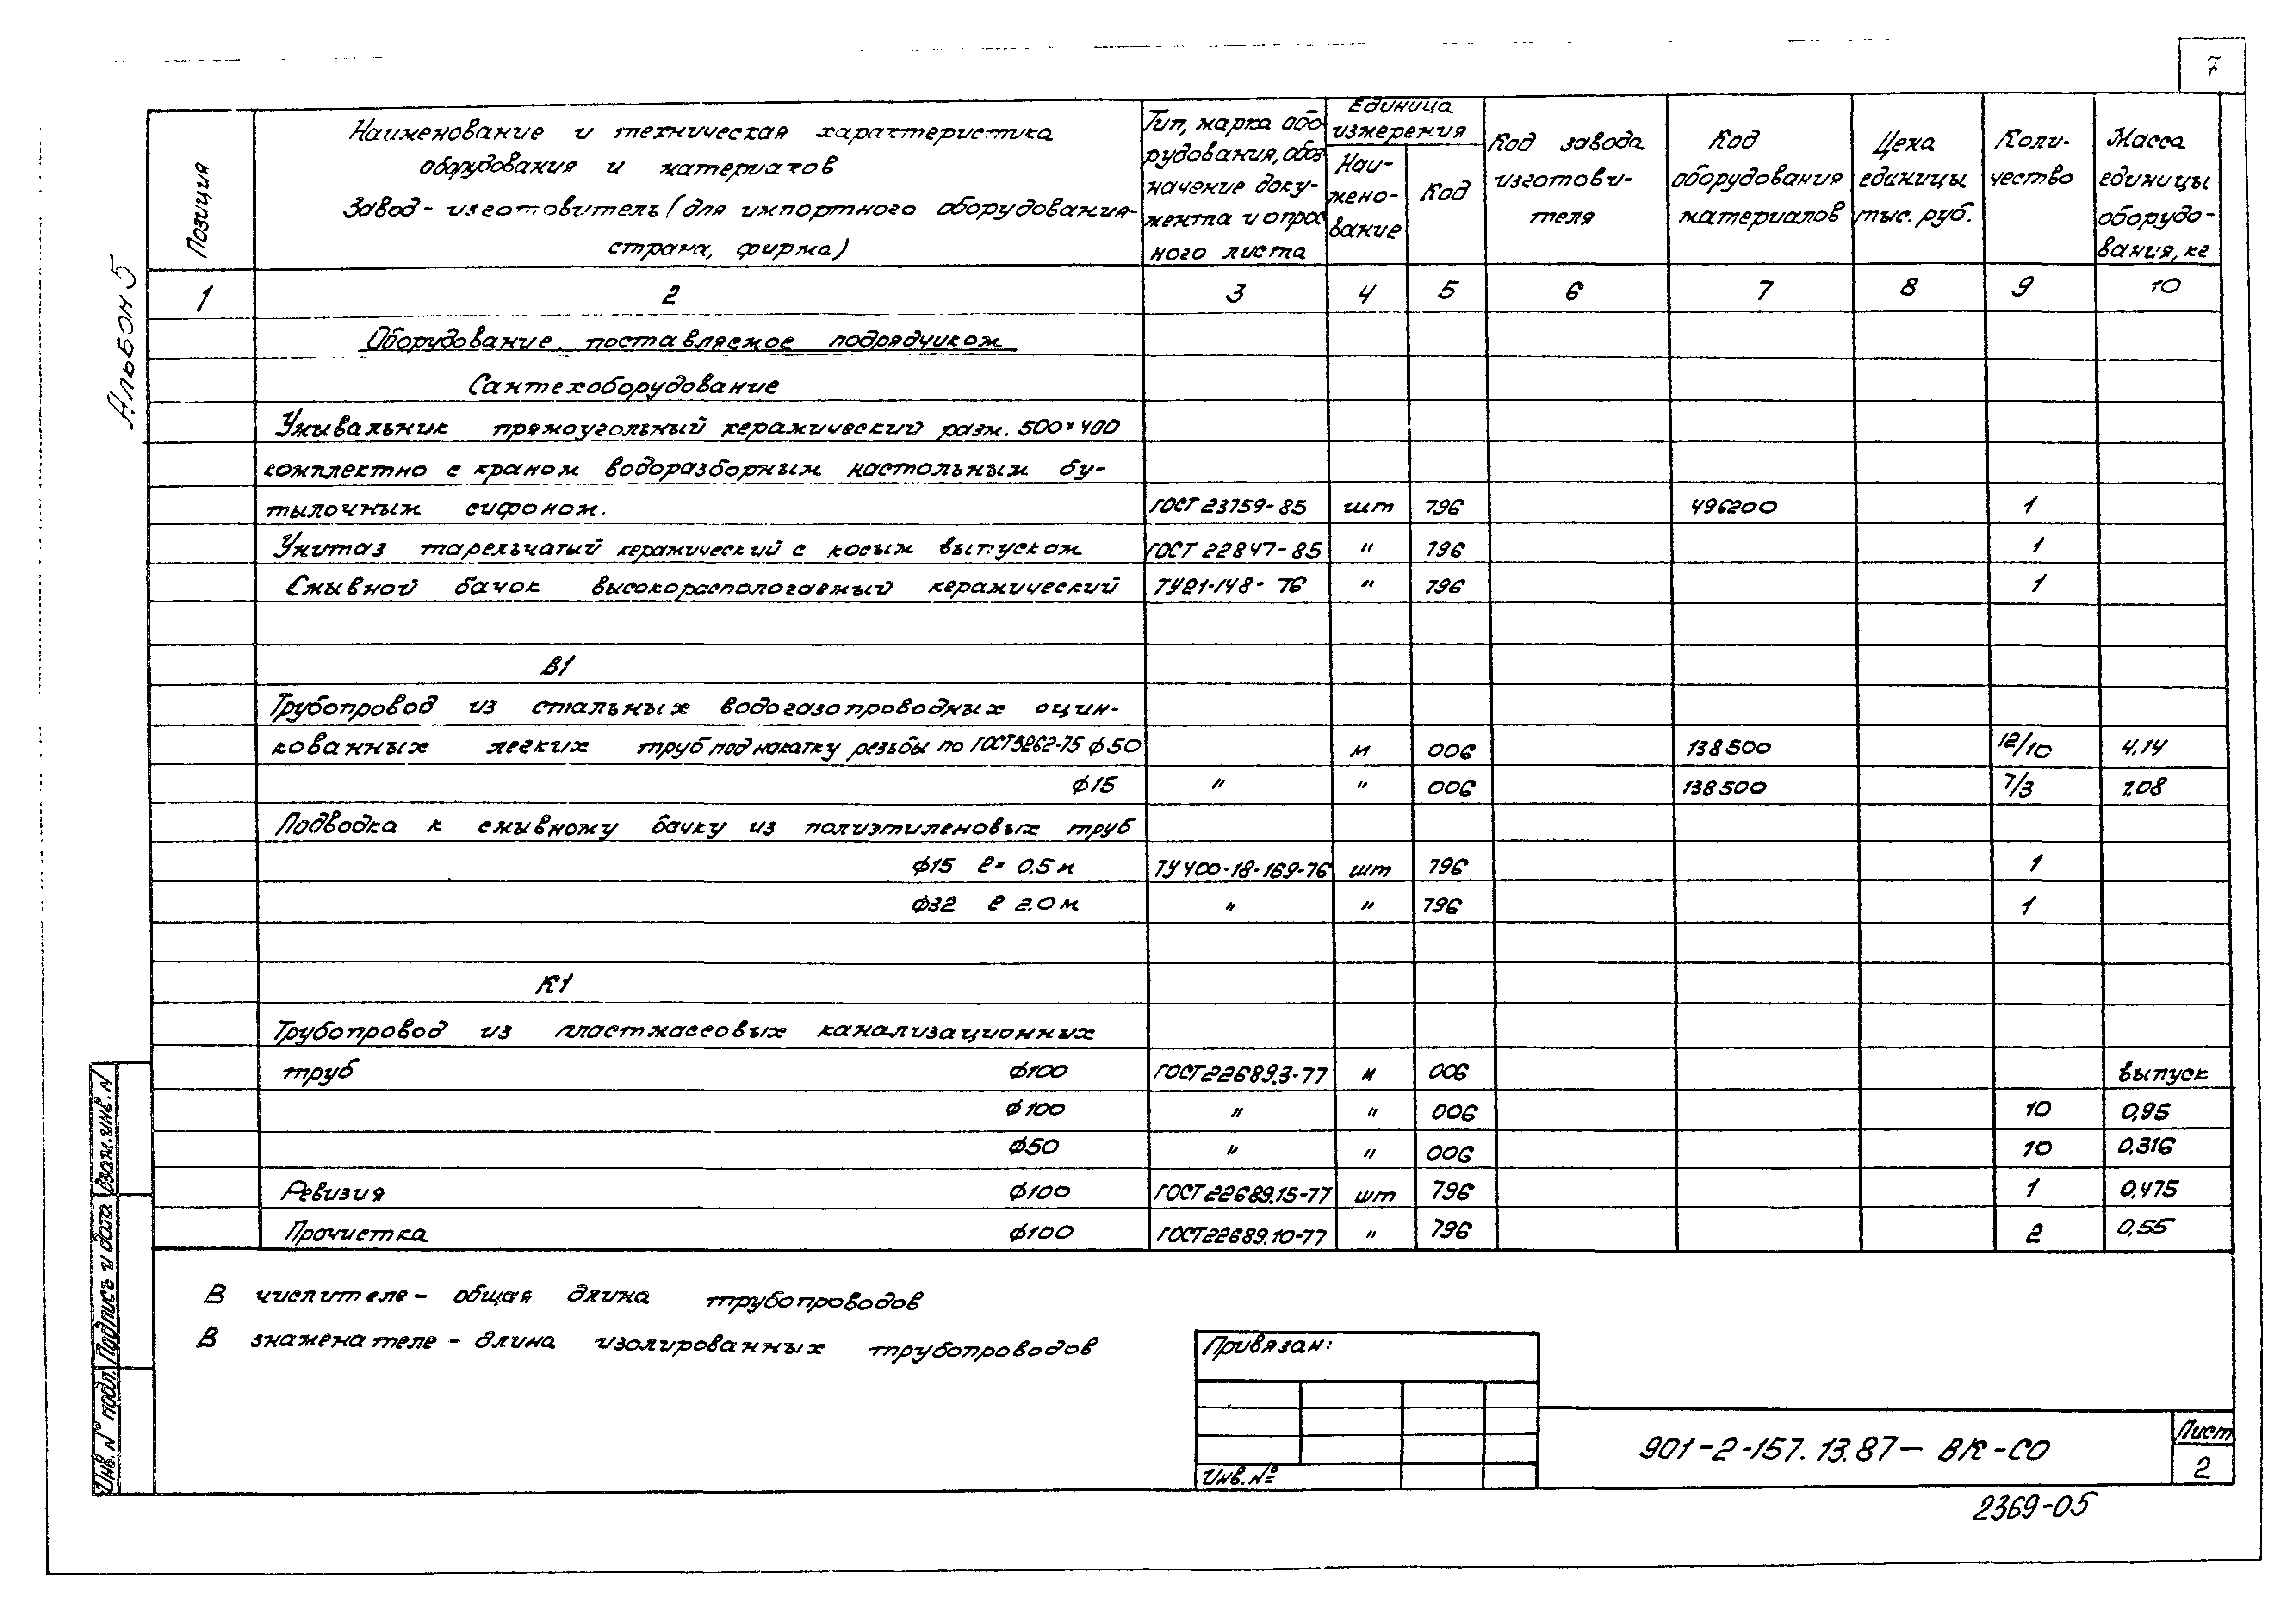 7
Альбом 5
Позиция
Наименование и техническая характеристика
оборудования и материалов
Завод-изготовитель (для импортного оборудования-
страна, фирма)
Тип, марка обо-
рудования, обоз-
начение доку-
мента и опрос-
ного листа
Единица
измерения
Наи-
мено-
вание
Код
Код завода
изготови-
теля
Код
оборудования
материалов
Цена
единицы
тыс. руб.
Коли-
чество
Масса
единицы
оборудо-
вания, кг
1 2 3 4 5 6 7 8 9 10
Оборудование, поставляемое подрядчиком
Сантехоборудование
Умывальник прямоугольный керамический разм. 500×400
комплектно с краном водоразборным настольным бу-
тылочным сифоном. ГОСТ 23759-85 шт 796 496200 1
Унитаз тарельчатый керамический с косым выпуском ГОСТ 22847-85 " 796 1
Смывной бачок высокорасполагаемый керамический ТУ21-148-76 " 796 1
В1
Трубопровод из стальных водогазопроводных оцин-
кованных легких труб под накатку резьбы по ГОСТ3262-75 ф50 м 006 138500 12/10 4.14
ф15 " " 006 138500 7/3 1,08
Подводка к смывному бачку из полиэтиленовых труб
ф15 ℓ= 0,5 м ТУ 400-18-169-76 шт 796 1
ф32 ℓ 2.0 м " " 796 1
К1
Трубопровод из пластмассовых канализационных
труб ф100 ГОСТ22689.3-77 м 006 выпуск
ф100 " " 006 10 0,95
ф50 " " 006 10 0,316
Ревизия ф100 ГОСТ22689.15-77 шт 796 1 0,475
Прочистка ф100 ГОСТ22689.10-77 " 796 2 0,55
В числителе - общая длина трубопроводов
В знаменателе - длина изолированных трубопроводов
Привязан:
Инв. №
901-2-157.13.87- ВК-СО
Лист
2
2369-05
Взам. инв. №
Подпись и дата
Инв. № подл.